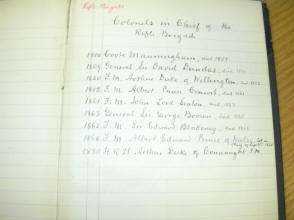 Rifle Brigade
Colonels in Chief of the
Rifle Brigade
1800 Coote Manningham, died 1809
1809 General Sir David Dundas, died
1820 F.M. Arthur Duke of Wellington, died 1852
1852 F.M. Albert Prince Consort, died 1861
1861 F.M. John Lord Seaton, died 1863
1863 General Sir George Brown, died 1865
1865 F.M. Sir Edward Blakeney, died 1868
1868 F.M. Albert Edward Prince of Wales
1880 H.R.H. Arthur Duke of Connaught F.M.